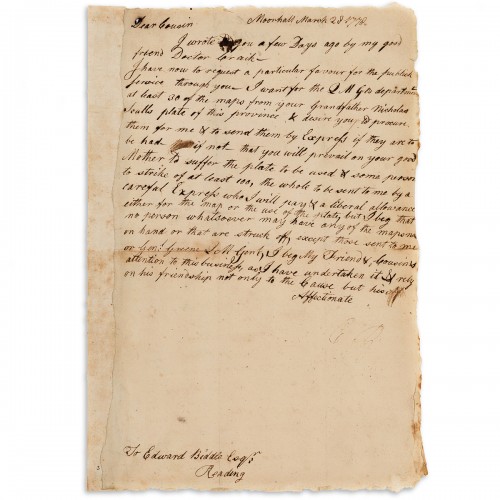 Moorhall March 28 1778
Dear Cousin
I wrote you a few Days ago by my good
friend Doctor Craik
I have now to request a particular favour for the publick
Service through you I want for the Q M Gls department
at least 30 of the maps from your Grandfather Nicholas
Sculls plate of this province & desire you to procure
them for me & to send them by Express if they are to
be had if not that you will prevail on your good
Mother to suffer the plate to be used & some person
to strike of at least 100, the whole to be sent to me by a
careful Express who I will pay & a liberal allowance
either for the map or the use of the plate, but I beg that
no person whatsoever may have any of the maps now
on hand or that are struck off except those sent to me
or Genl Greene Q M Genl, I beg My Friend & Cousins
attention to this business as I have undertaken it & rely
on his friendship not only to the Cause but his
Affectionate
To Edward Biddle Esqr
Reading